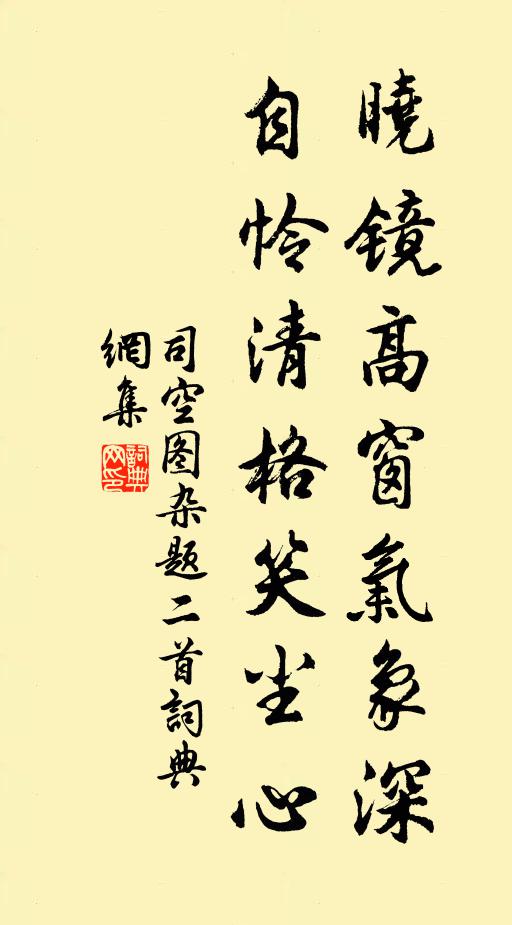 曉镜高窗氣象深
自怜清格笑尘心
司空图杂题二首詞典
網集
詞典
网印